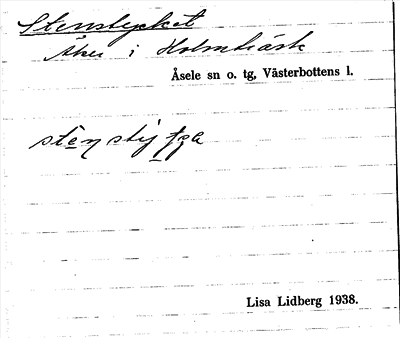 Stenstycket
Åker i Holmträsk
Åsele sn o. tg, Västerbottens l.
Lisa Lidberg 1938.